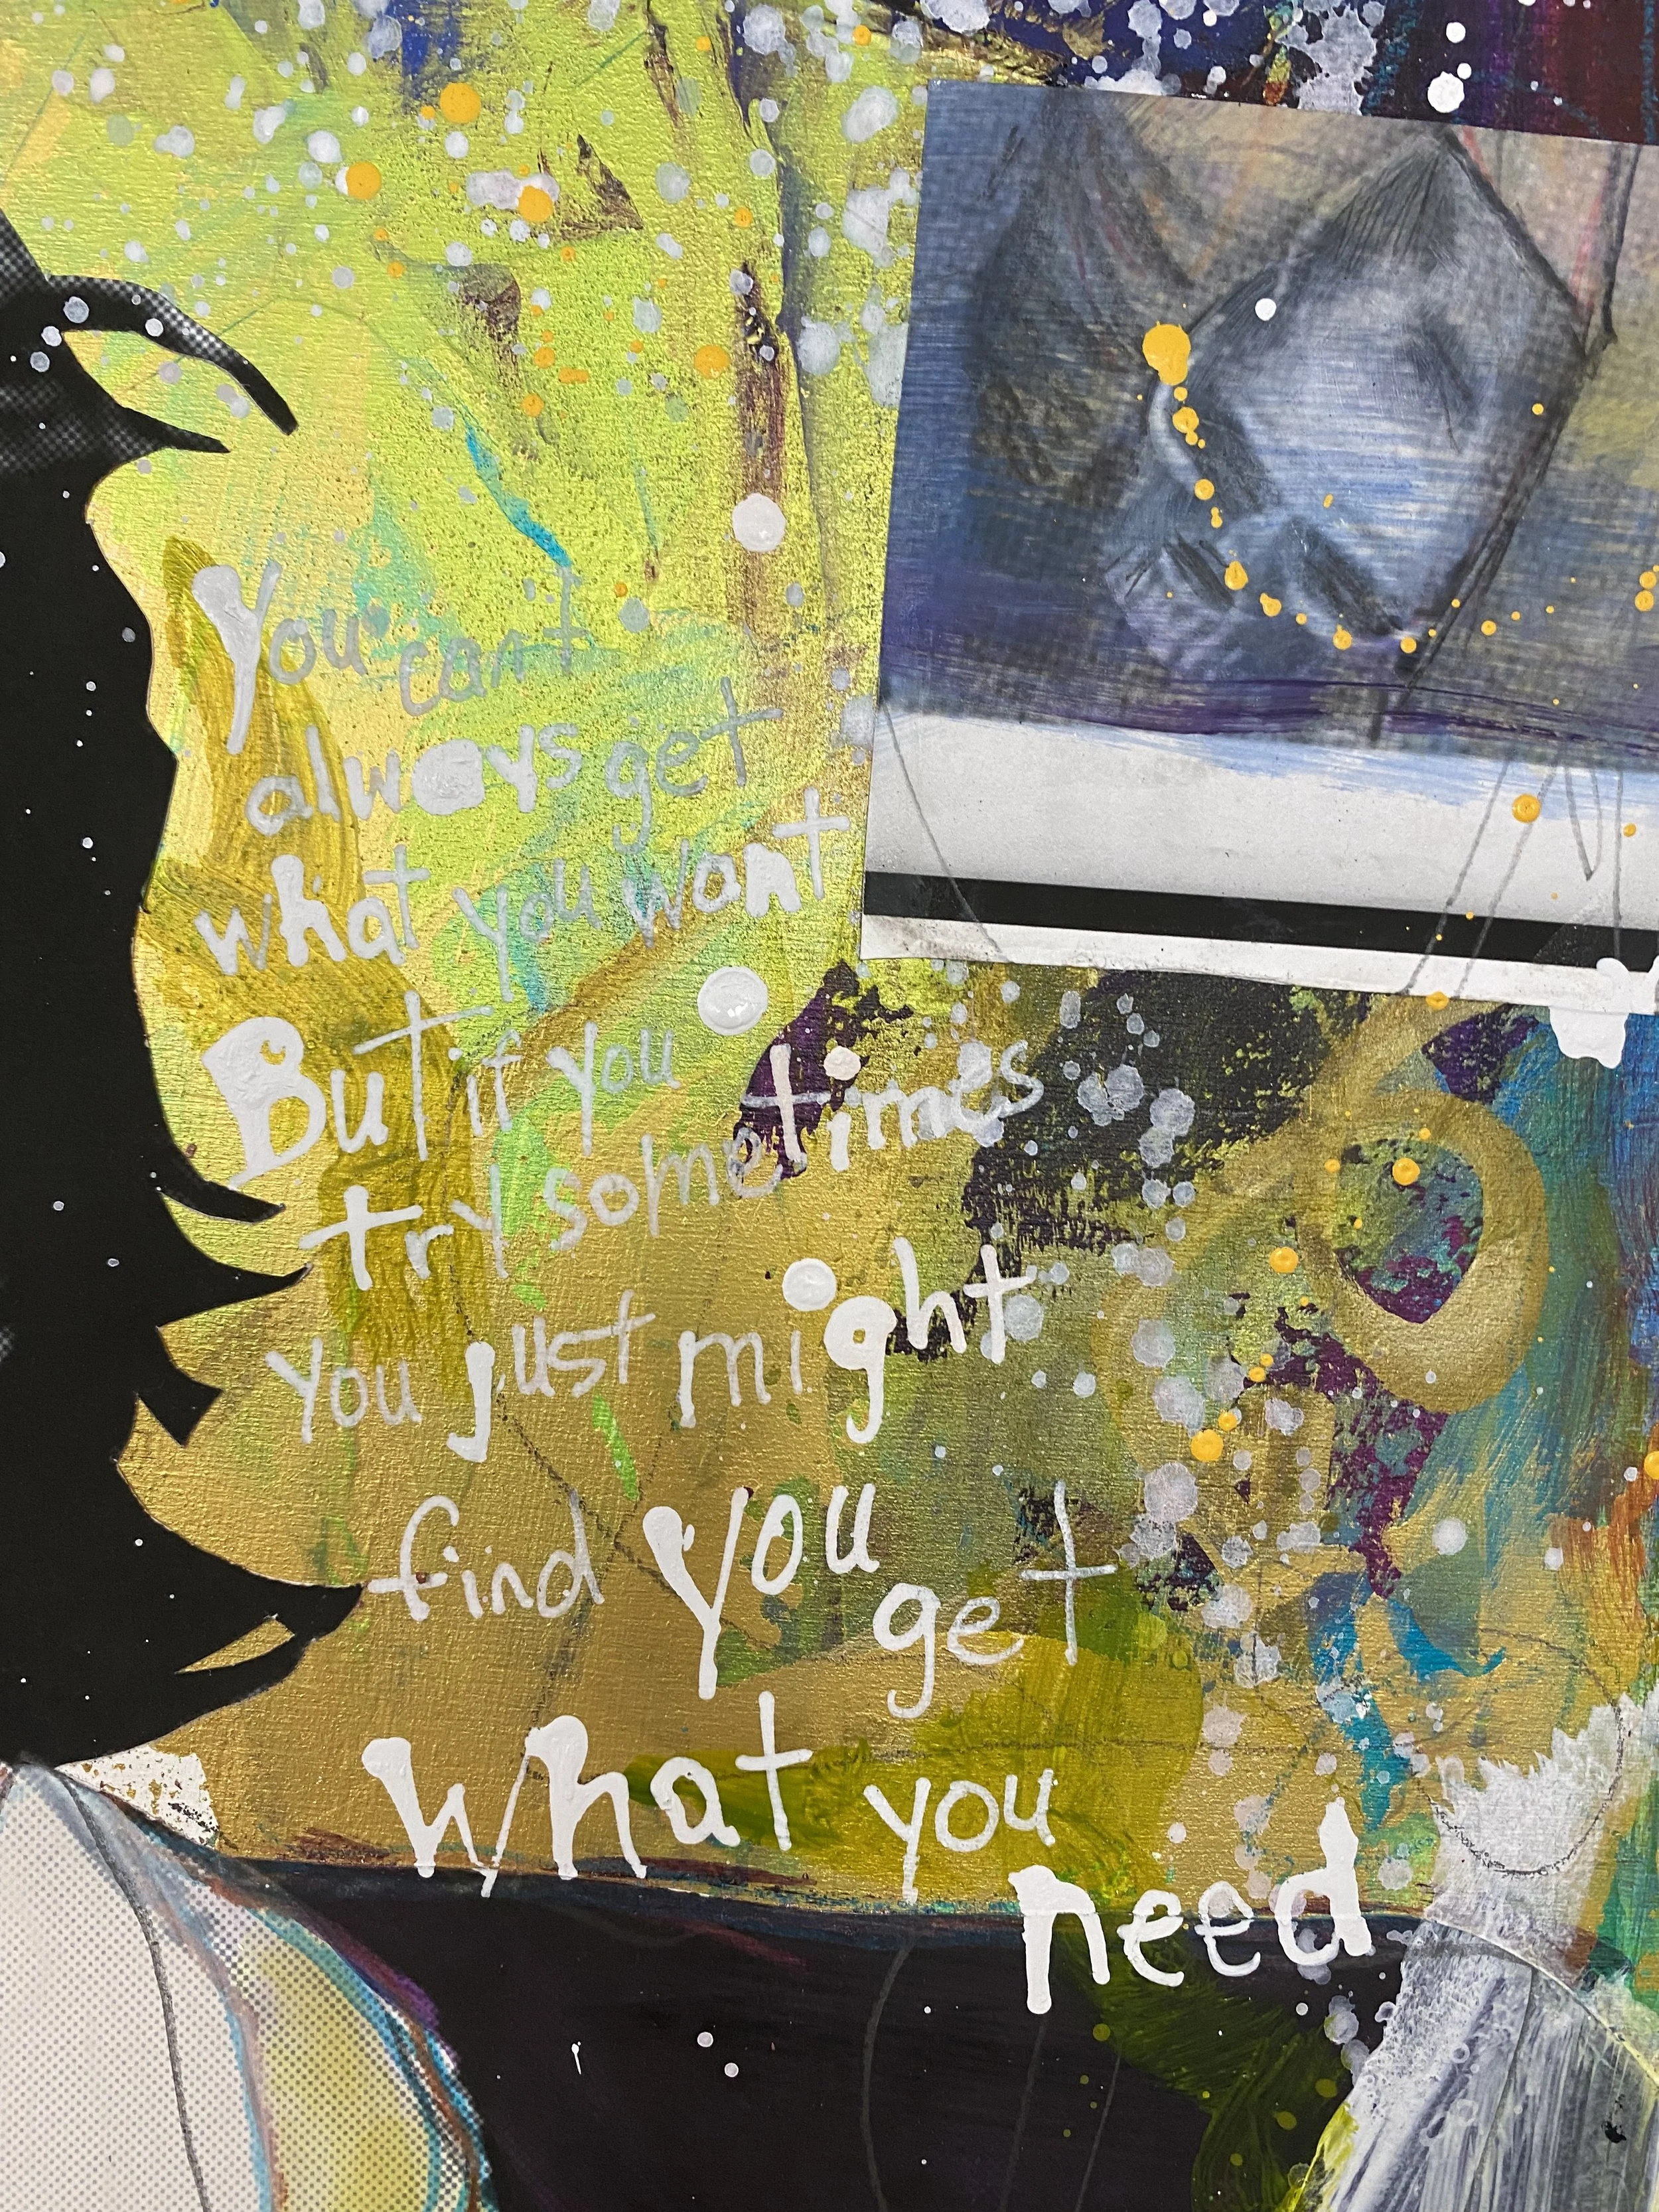 You can't
always get
what you want
But if you
try sometimes
you just might
find you get
what you
need